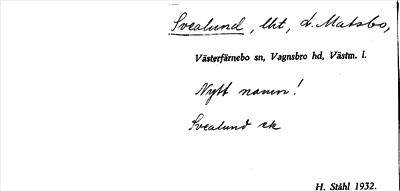 Svealund, lht, d. Matsbo,
Västerfärnebo sn, Vagnsbro hd, Västm. l.
Nytt namn!
Svealund ek
H. Ståhl 1932.